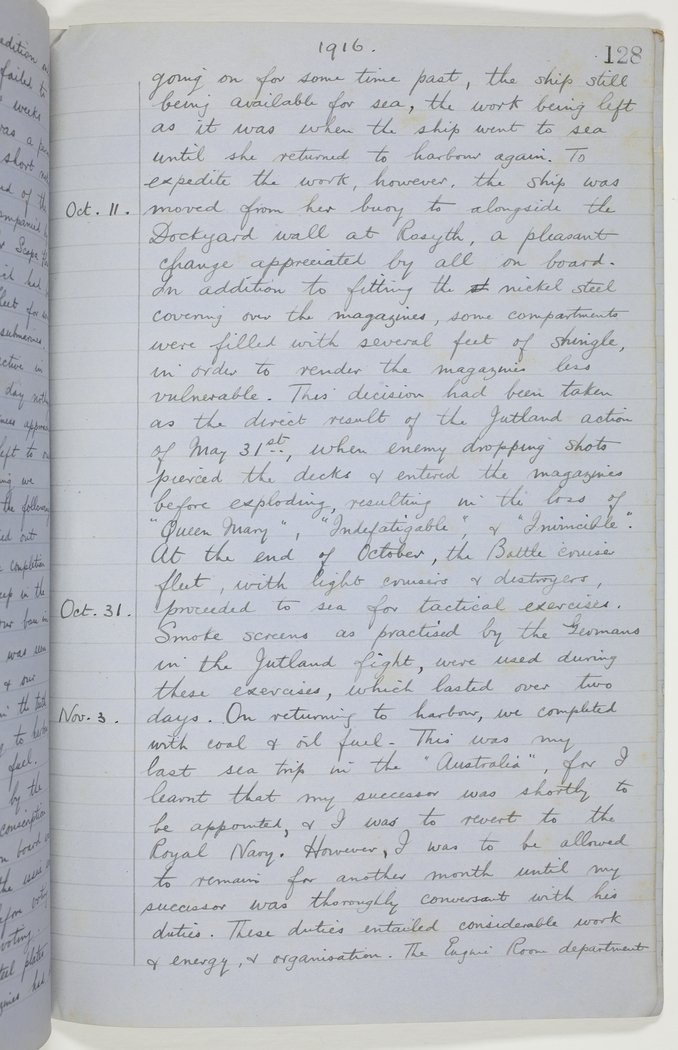 1916.
128
going on for some time past, the ship still
being available for sea, the work being left
as it was when the ship went to sea
until she returned to harbour again. To
expedite the work, however, the ship was
Oct. 11. moved from her buoy to alongside the
Dockyard wall at Rosyth, a pleasant
change appreciated by all on board.
In addition to fitting the st nickel steel
covering over the magazines, some compartments
were filled with several feet of shingle,
in order to render the magazines less
vulnerable. This decision had been taken
as the direct result of the Jutland action
of May 31st, when enemy dropping shots
pierced the decks & entered the magazines
before exploding, resulting in the loss of
"Queen Mary", "Indefatigable", & "Invincible".
At the end of October, the Battle cruiser
fleet, with light cruisers & destroyers,
Oct. 31. proceeded to sea for tactical exercises.
Smoke screens as practised by the Germans
in the Jutland fight, were used during
these exercises, which lasted over two
Nov. 3. days. On returning to harbour, we completed
with coal & oil fuel. This was my
last sea trip in the "Australia", for I
learnt that my successor was shortly to
be appointed, & I was to revert to the
Royal Navy. However, I was to be allowed
to remain for another month until my
successor was thoroughly conversant with his
duties. These duties entailed considerable work
& energy, & organisation. The Engine Room department